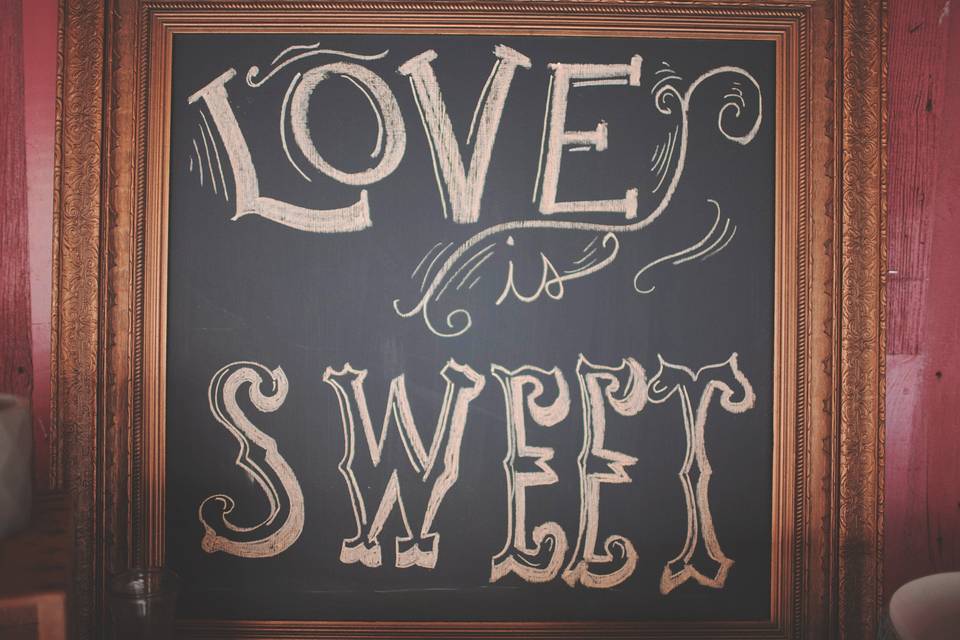 LOVE
is
SWEET